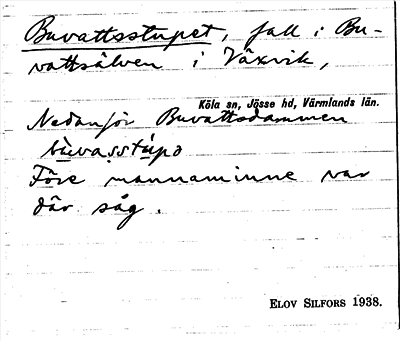 Buvattsstupet, fall i Bu-
vattsälven i Växvik,
Köla sn, Jösse hd, Värmlands län.
Nedanför Buvattsdammen
Före mannaminne var
där såg.
ELOV SILFORS 1938.